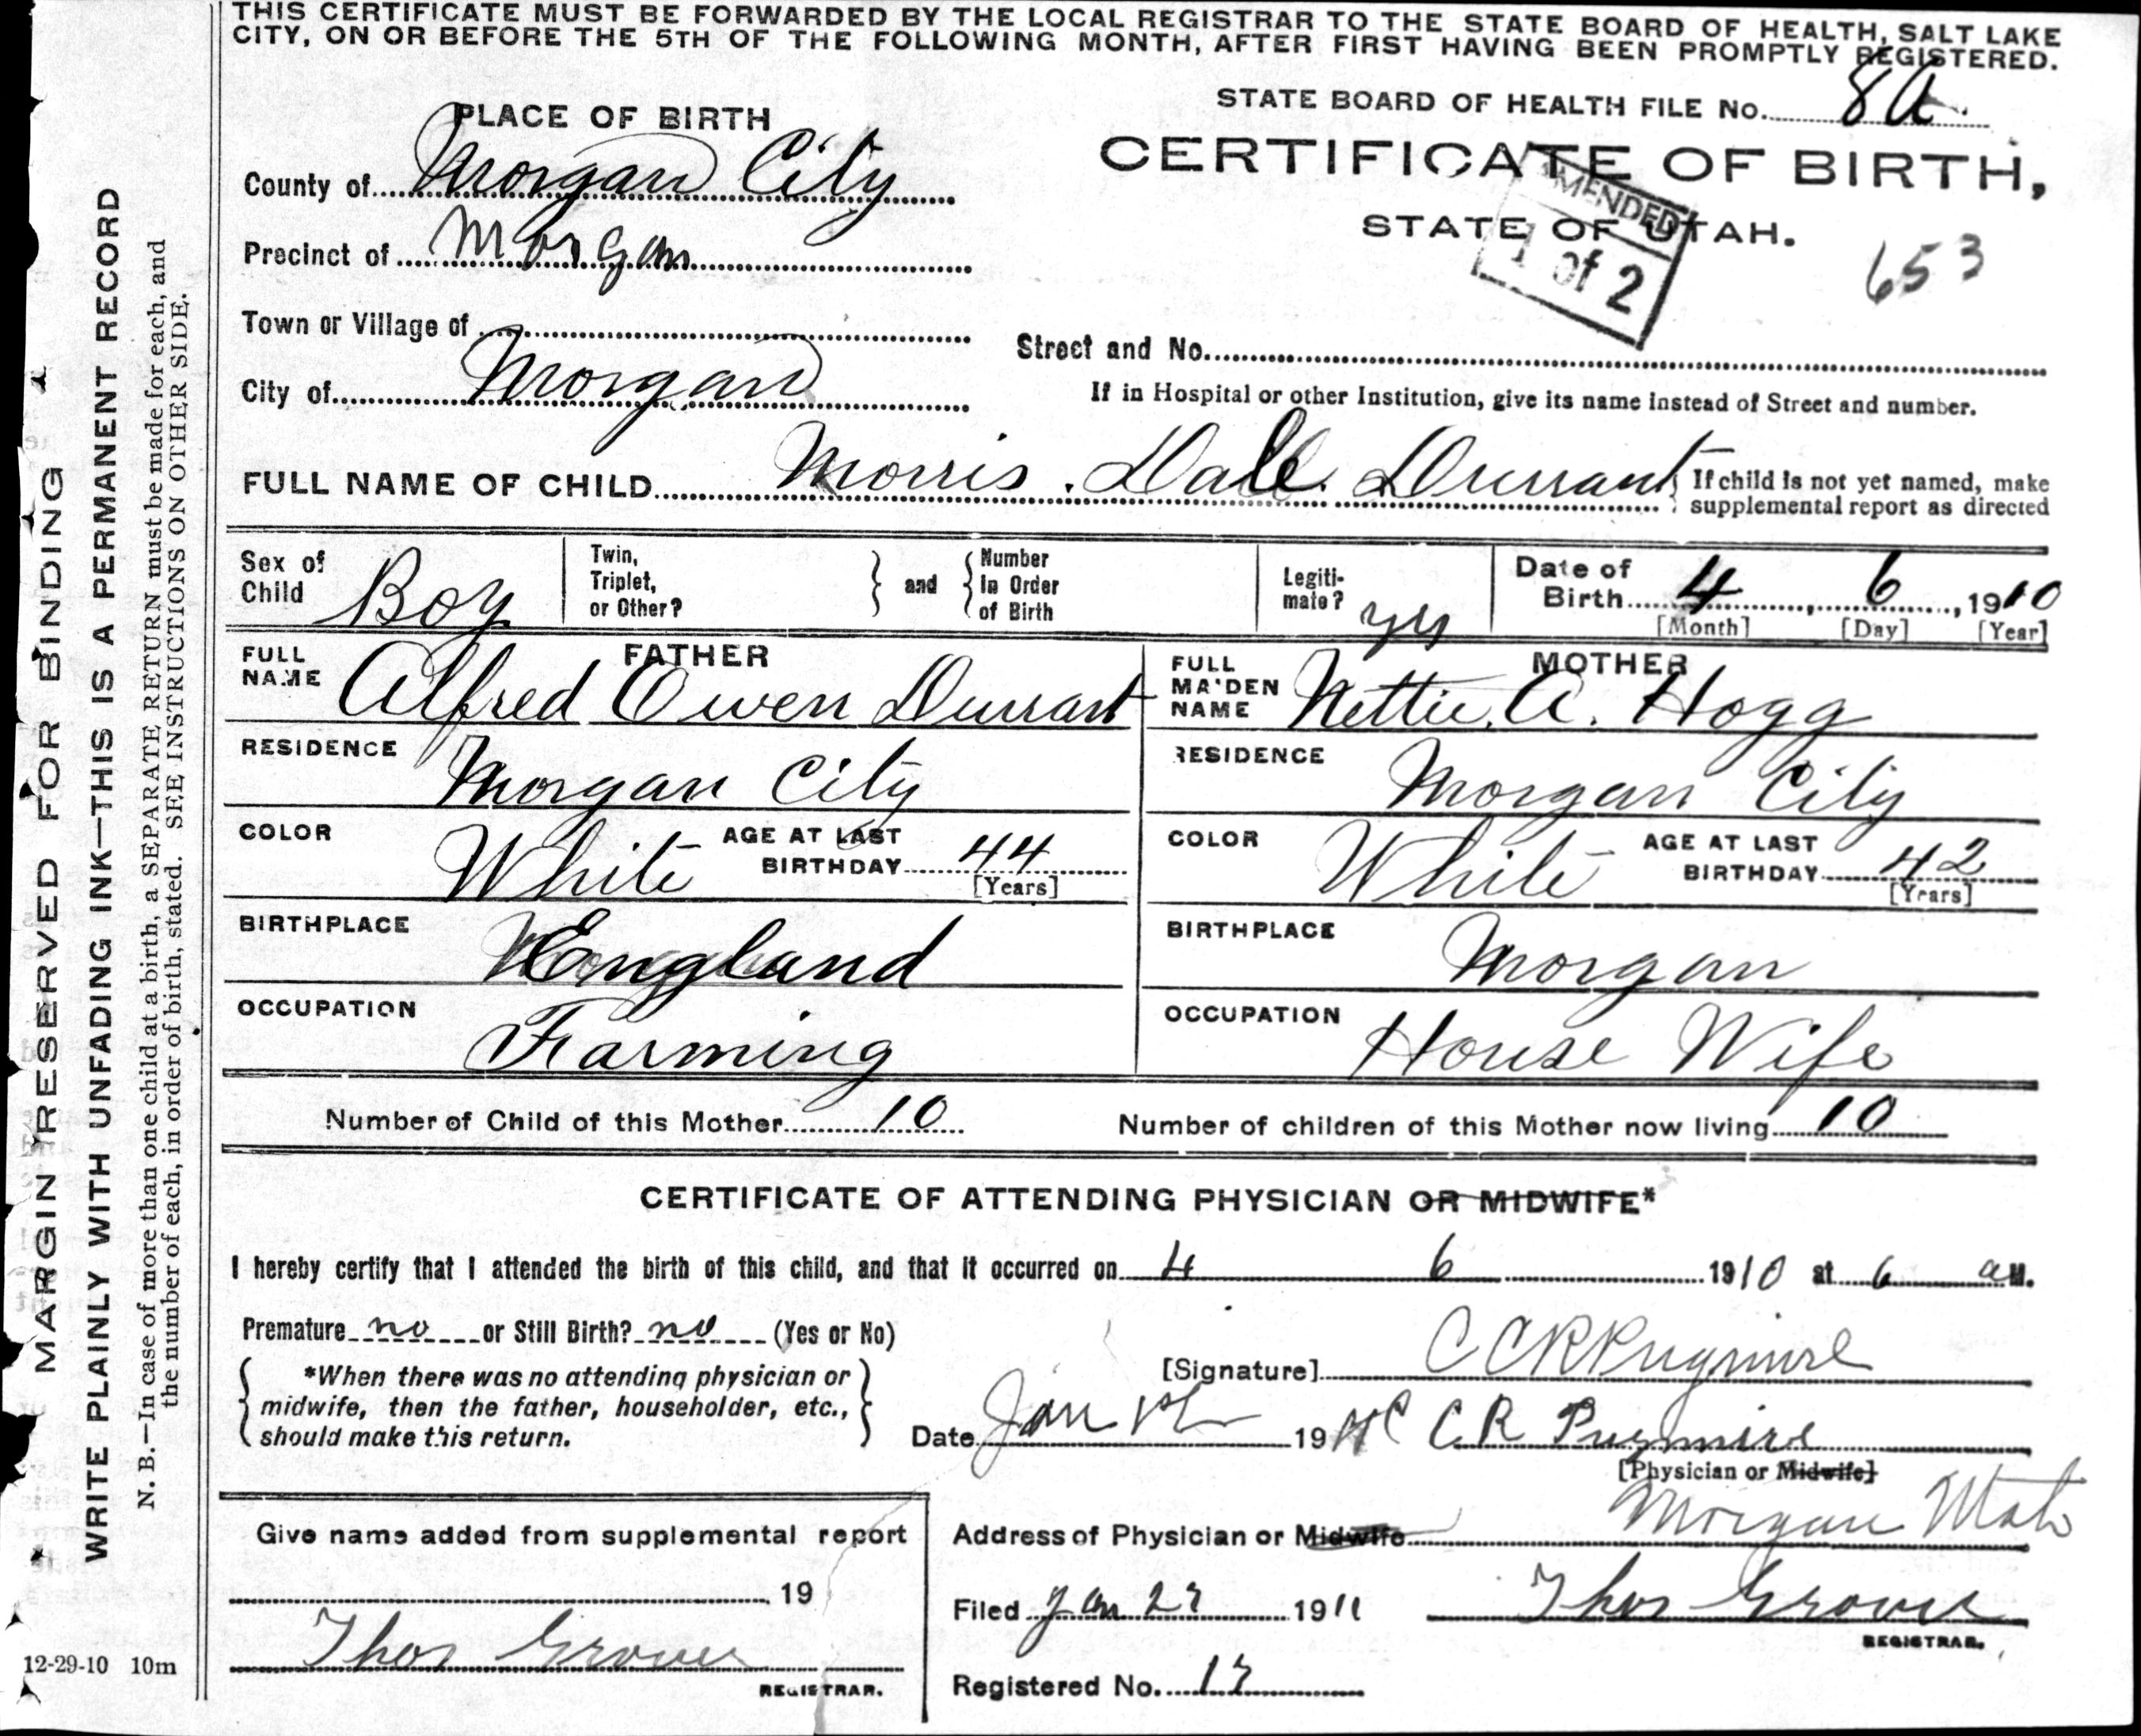 THIS CERTIFICATE MUST BE FORWARDED BY THE LOCAL REGISTRAR TO THE STATE BOARD OF HEALTH, SALT LAKE
CITY, ON OR BEFORE THE 5TH OF THE FOLLOWING MONTH, AFTER FIRST HAVING BEEN PROMPTLY REGISTERED.
STATE BOARD OF HEALTH FILE No. 8a
PLACE OF BIRTH
CERTIFICATE OF BIRTH,
STATE OF UTAH.
AMENDED
1 of 2
653
County of Morgan City
Precinct of Morgan
Town or Village of
Street and No.
City of Morgan
If in Hospital or other Institution, give its name instead of Street and number.
FULL NAME OF CHILD Morris Dale Durrant
If child is not yet named, make
supplemental report as directed
Sex of Child Boy
Twin, Triplet, or Other?
and
Number in Order of Birth
Legiti-mate? yes
Date of Birth 4, 6, 1910
[Month] [Day] [Year]
FATHER
FULL NAME Alfred Owen Durrant
MOTHER
FULL MAIDEN NAME Nettie A. Hogg
RESIDENCE Morgan City
RESIDENCE Morgan City
COLOR White AGE AT LAST BIRTHDAY 44 [Years]
COLOR White AGE AT LAST BIRTHDAY 42 [Years]
BIRTHPLACE England
BIRTHPLACE Morgan
OCCUPATION Farming
OCCUPATION House Wife
Number of Child of this Mother 10
Number of children of this Mother now living 10
CERTIFICATE OF ATTENDING PHYSICIAN OR MIDWIFE*
I hereby certify that I attended the birth of this child, and that it occurred on 4 6 1910 at 6 a M.
Premature no or Still Birth? no (Yes or No)
[Signature] C C R Pugmire
*When there was no attending physician or
midwife, then the father, householder, etc.,
should make this return.
Date Jan 19
C R Pugmire
[Physician or Midwife]
Give name added from supplemental report
19
Thos Grover
REGISTRAR.
Address of Physician or Midwife Morgan Utah
Filed Jan 1911
Thos Grover
REGISTRAR.
Registered No.
12-29-10 10m
MARGIN RESERVED FOR BINDING
WRITE PLAINLY WITH UNFADING INK—THIS IS A PERMANENT RECORD
N. B.—In case of more than one child at a birth, a SEPARATE RETURN must be made for each, and
the number of each, in order of birth, stated. SEE INSTRUCTIONS ON OTHER SIDE.